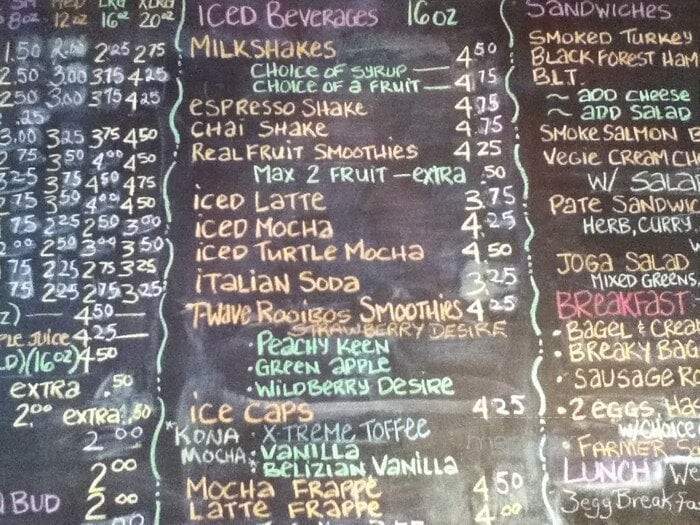 SM MED LRG XLRG
8oz 12oz 16oz 20oz
1.50 2.00 2.25 2.75
2.50 3.00 3.75 4.25
2.50 3.00 3.75 4.25
.25
3.00 3.25 3.75 4.50
75 3.50 4.00 4.50
3.25 3.75 4.50 4.75
75 3.50 4.00 4.50
75 2.25 2.50 3.00
2.00 2.50 3.00 3.50
75 2.25 2.75 3.25
75 2.25 2.75 3.25
4.50
JUICE 4.25
(16oz) 4.50
EXTRA .50
2.00 EXTRA .50
2.00
2.00
BUD 2.00
ICED BEVERAGES 16oz
MILKSHAKES 4.50
CHOICE OF SYRUP —
CHOICE OF A FRUIT — 4.75
ESPRESSO SHAKE 4.75
CHAI SHAKE 4.75
REAL FRUIT SMOOTHIES 4.25
MAX 2 FRUIT — EXTRA .50
ICED LATTE 3.75
ICED MOCHA 4.25
ICED TURTLE MOCHA 4.50
ITALIAN SODA 3.25
T-WAVE ROOIBOS SMOOTHIES 4.25
STRAWBERRY DESIRE
• PEACHY KEEN
• GREEN APPLE
• WILDBERRY DESIRE
ICE CAPS 4.25
*KONA • X-TREME TOFFEE
MOCHA • VANILLA
• BELIZIAN VANILLA
MOCHA FRAPPE 4.50
LATTE FRAPPE 4.00
SANDWICHES
SMOKED TURKEY
BLACK FOREST HAM
B.L.T.
~ ADD CHEESE
~ ADD SALAD
SMOKE SALMON
VEGIE CREAM
W/ SALAD
PATE
HERB, CURRY
JOGA SALAD
MIXED GREENS
BREAKFAST
• BAGEL &
• BREAKY
• SAUSAGE
• 2 EGGS,
W/CHOICE
• FARMER
LUNCH We
3egg Breakfast